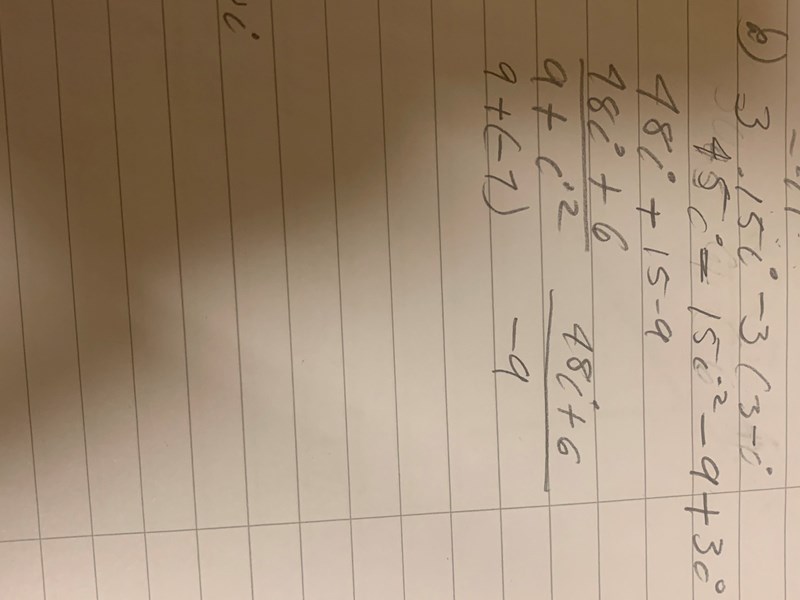 b) 3.15i - 3(3-i
45i - 15i² - 9 + 3i
48i + 15 - 9
48i + 6
9 + i²
9 + (-1)
48i + 6
-9
i